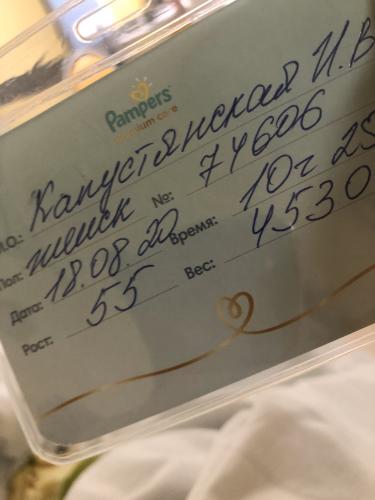 Pampers
premium care
.И.О.: Капустянская И.В
Пол: женск №: 74606
Дата: 18.08.20 Время: 10ч 25
Рост: 55 Вес: 4530